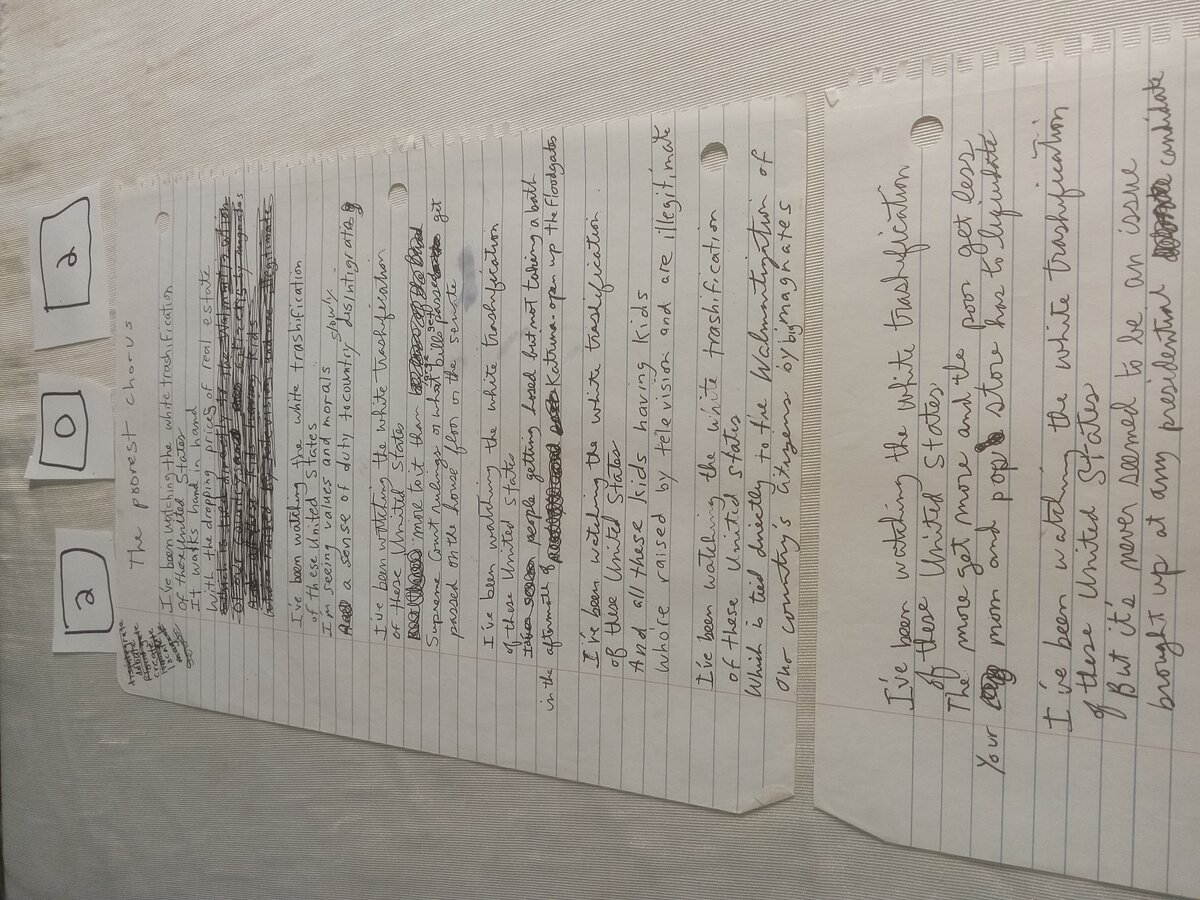 2 0 2
The poorest chorus
I've been watching the white trashification
of these United States
It walks hand in hand
with the dropping prices of real estate
I've been watching the white trashification
of these United States
I'm seeing values and morals slowly
a sense of duty to country disintigrating
I've been watching the white trashification
of these United States
more to it than
Supreme Court rulings or what bills get
passed on the house floor or the senate
I've been watching the white trashification
of these United States
people getting hosed but not taking a bath
in the aftermath of Katrina - open up the floodgates
I've been watching the white trashification
of these United States
And all these kids having kids
Whore raised by television and are illegitimate
I've been watching the white trashification
of these United States
Which is tied directly to the Walmartization of
Our country's citizens by big magnates
I've been watching the white trashification
of these United States
The more get more and the poor get less
Your mom and pop store has to liquidate
I've been watching the white trashification
of these United States
But it's never seemed to be an issue
brought up at any presidential candidate